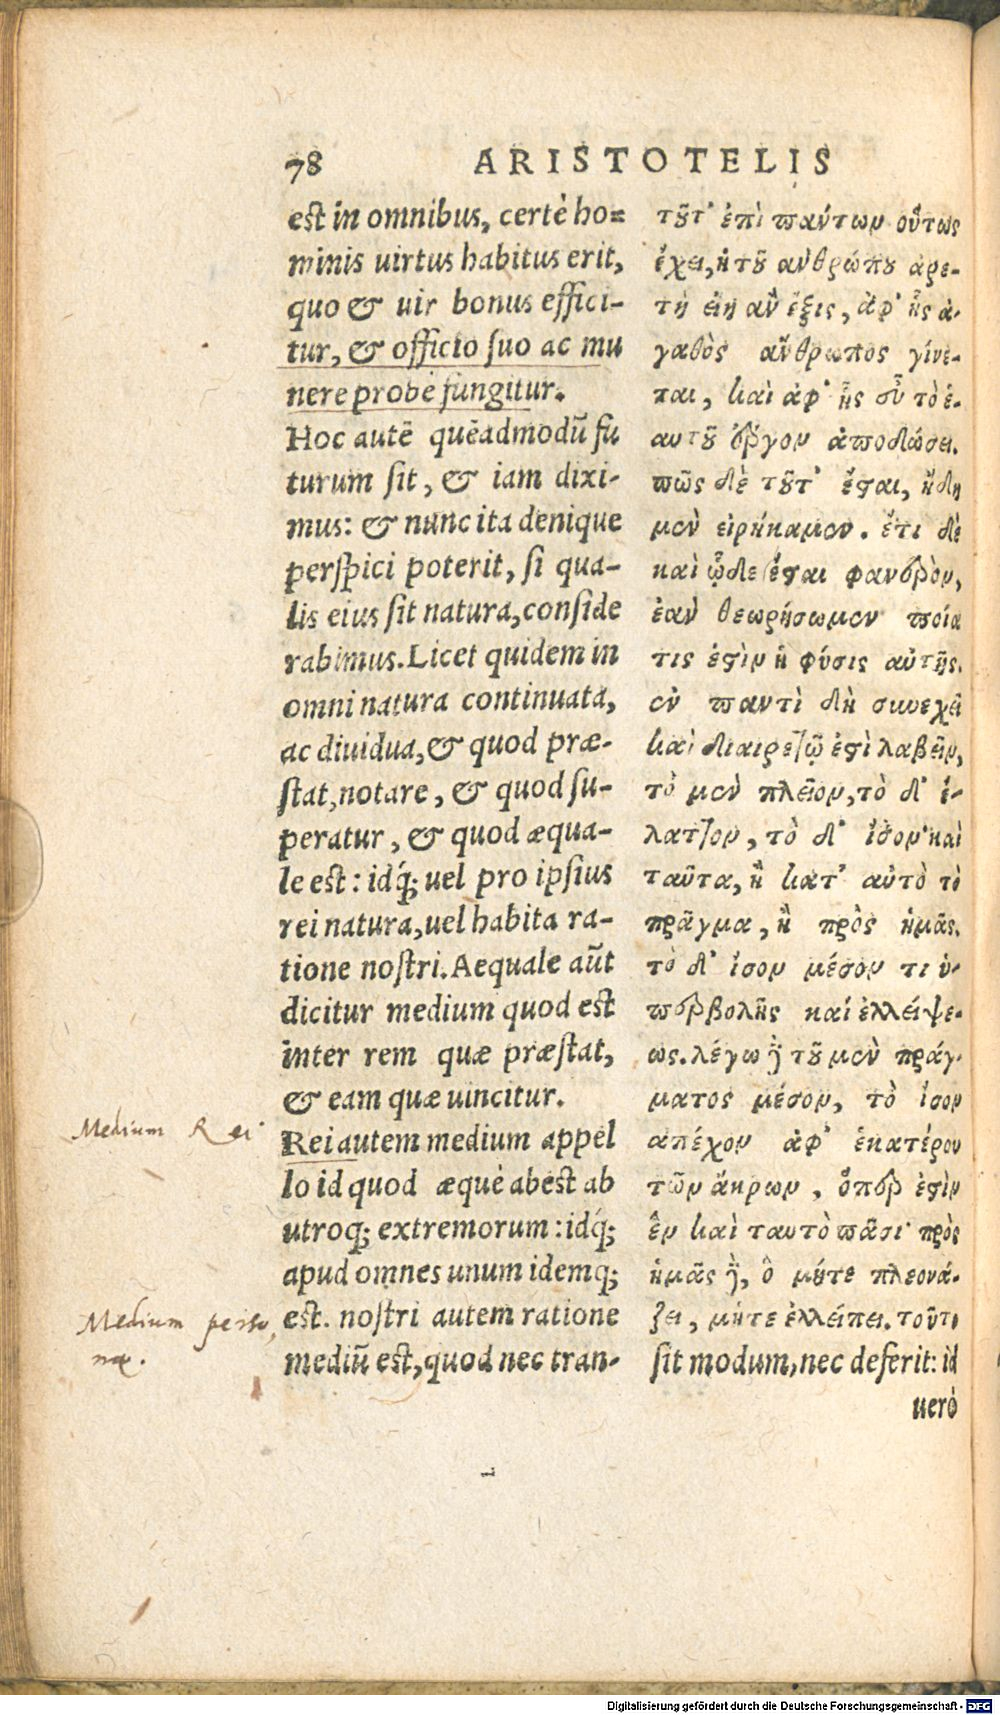 78 ARISTOTELIS
est in omnibus, certè ho=
minis uirtus habitus erit,
quo & uir bonus effici-
tur, & officio suo ac mu
nere probè fungitur.
Hoc autē quēadmodū fu
turum sit, & iam dixi-
mus: & nunc ita denique
perspici poterit, si qua-
lis eius sit natura, conside
rabimus. Licet quidem in
omni natura continuata,
ac diuidua, & quod præ-
stat, notare, & quod su-
peratur, & quod æqua-
le est: idq́; uel pro ipsius
rei natura, uel habita ra-
tione nostri. Aequale aūt
dicitur medium quod est
inter rem quæ præstat,
& eam quæ uincitur.
Rei autem medium appel
lo id quod æquè abest ab
utroq; extremorum: idq́;
apud omnes unum idemq;
est. nostri autem ratione
mediū est, quod nec tran-
τοῦτ' ἐπὶ πάντων οὕτως
ἔχει, ἡ τοῦ ἀνθρώπου ἀρε-
τὴ εἴη ἂν ἕξις, ἀφ' ἧς ἀ-
γαθὸς ἄνθρωπος γίνε-
ται, καὶ ἀφ' ἧς εὖ τὸ ἑ-
αυτοῦ ἔργον ἀποδώσει.
πῶς δὲ τοῦτ' ἔσται, ἤδη
μὲν εἰρήκαμεν. ἔτι δὲ
καὶ ὧδε ἔσται φανερὸν,
ἐὰν θεωρήσωμεν ποία
τις ἐστὶν ἡ φύσις αὐτῆς.
ἐν παντὶ δὴ συνεχεῖ
καὶ διαιρετῷ ἐστὶ λαβεῖν,
τὸ μὲν πλεῖον, τὸ δ' ἔ-
λαττον, τὸ δ' ἴσον· καὶ
ταῦτα, ἢ κατ' αὐτὸ τὸ
πρᾶγμα, ἢ πρὸς ἡμᾶς.
τὸ δ' ἴσον μέσον τι ὑ-
περβολῆς καὶ ἐλλείψε-
ως. λέγω δὲ τοῦ μὲν πράγ-
ματος μέσον, τὸ ἴσον
ἀπέχον ἀφ' ἑκατέρου
τῶν ἄκρων, ὅπερ ἐστὶν
ἓν καὶ ταυτὸ πᾶσι· πρὸς
ἡμᾶς δὲ, ὃ μήτε πλεονά-
ζει, μήτε ἐλλείπει. τοῦτο
sit modum, nec deferit: id
uerò
Medium Rei
Medium perso,
næ.
Digitalisierung gefördert durch die Deutsche Forschungsgemeinschaft - DFG